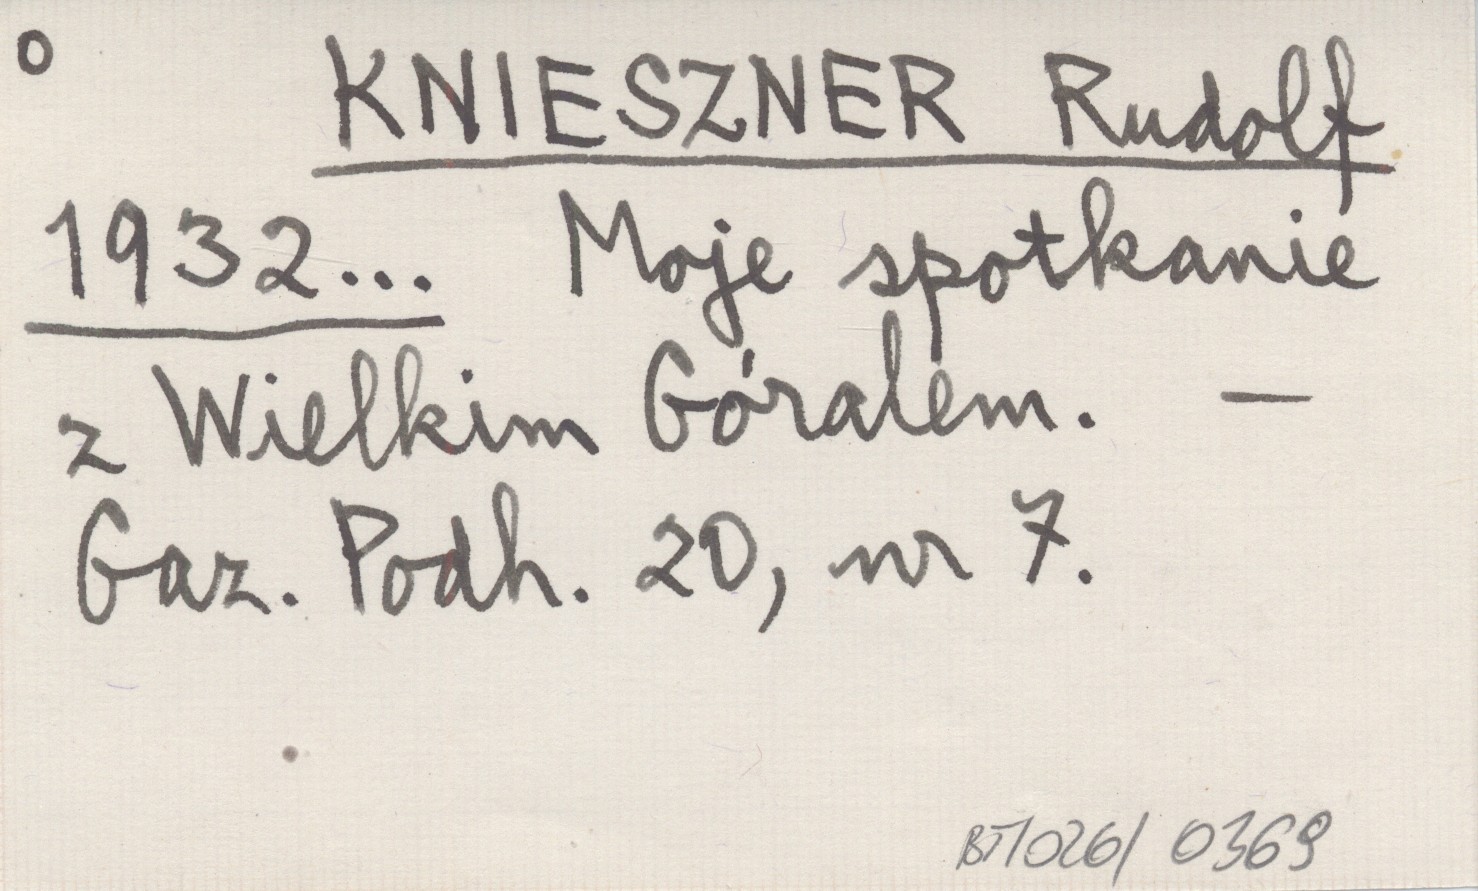 o KNIESZNER Rudolf
1932... Moje spotkanie
z Wielkim Góralem. —
Gaz. Podh. 20, nr 7.
BT/026/ 0369